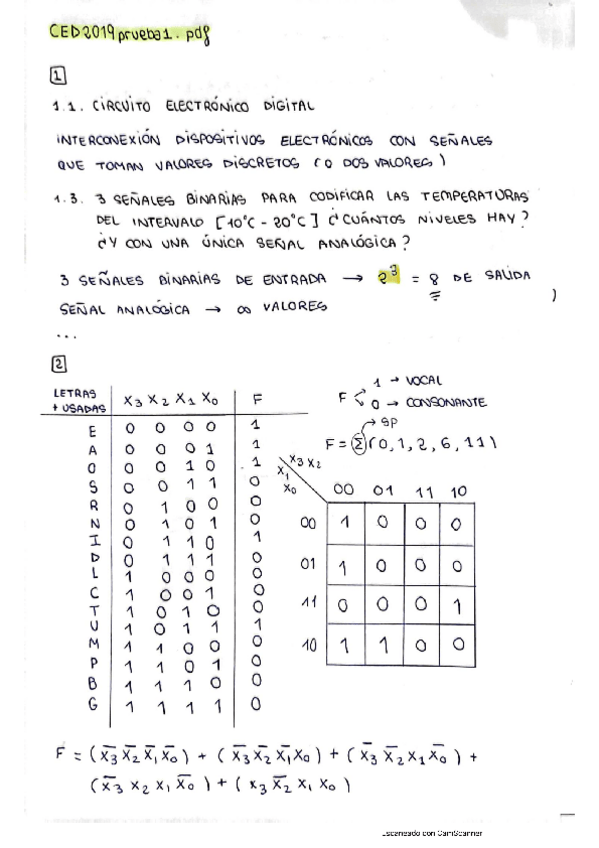 CED2019prueba1.pdf
1
1.1. CIRCUITO ELECTRÓNICO DIGITAL
INTERCONEXIÓN DISPOSITIVOS ELECTRÓNICOS CON SEÑALES
QUE TOMAN VALORES DISCRETOS (O DOS VALORES)
1.3. 3 SEÑALES BINARIAS PARA CODIFICAR LAS TEMPERATURAS
DEL INTERVALO [10°C - 20°C] ¿CUÁNTOS NIVELES HAY?
¿Y CON UNA ÚNICA SEÑAL ANALÓGICA?
3 SEÑALES BINARIAS DE ENTRADA → 2³ = 8 DE SALIDA
SEÑAL ANALÓGICA → ∞ VALORES
...
2
LETRAS + USADAS X3 X2 X1 X0 F
E 0 0 0 0 1
A 0 0 0 1 1
O 0 0 1 0 1
S 0 0 1 1 0
R 0 1 0 0 0
N 0 1 0 1 0
I 0 1 1 0 1
D 0 1 1 1 0
L 1 0 0 0 0
C 1 0 0 1 0
T 1 0 1 0 0
U 1 0 1 1 1
M 1 1 0 0 0
P 1 1 0 1 0
B 1 1 1 0 0
G 1 1 1 1 0
F < 1 → VOCAL
0 → CONSONANTE
→ SP
F = Σ(0,1,2,6,11)
X3 X2
X1 X0 00 01 11 10
00 1 0 0 0
01 1 0 0 0
11 0 0 0 1
10 1 1 0 0
F = (X̄3 X̄2 X̄1 X̄0) + (X̄3 X̄2 X̄1 X0) + (X̄3 X̄2 X1 X̄0) +
(X̄3 X2 X1 X̄0) + (X3 X̄2 X1 X0)
Escaneado con CamScanner